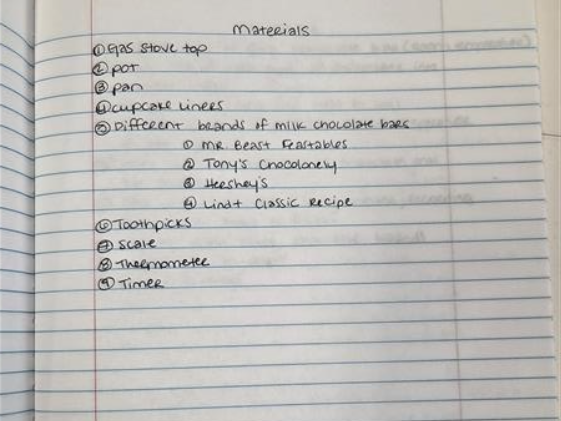 Materials
① Gas stove top
② pot
③ pan
④ cupcake liners
⑤ Different brands of milk chocolate bars
① MR. Beast Feastables
② Tony's Chocolonely
③ Hershey's
④ Lindt Classic Recipe
⑥ Toothpicks
⑦ Scale
⑧ Thermometer
⑨ Timer